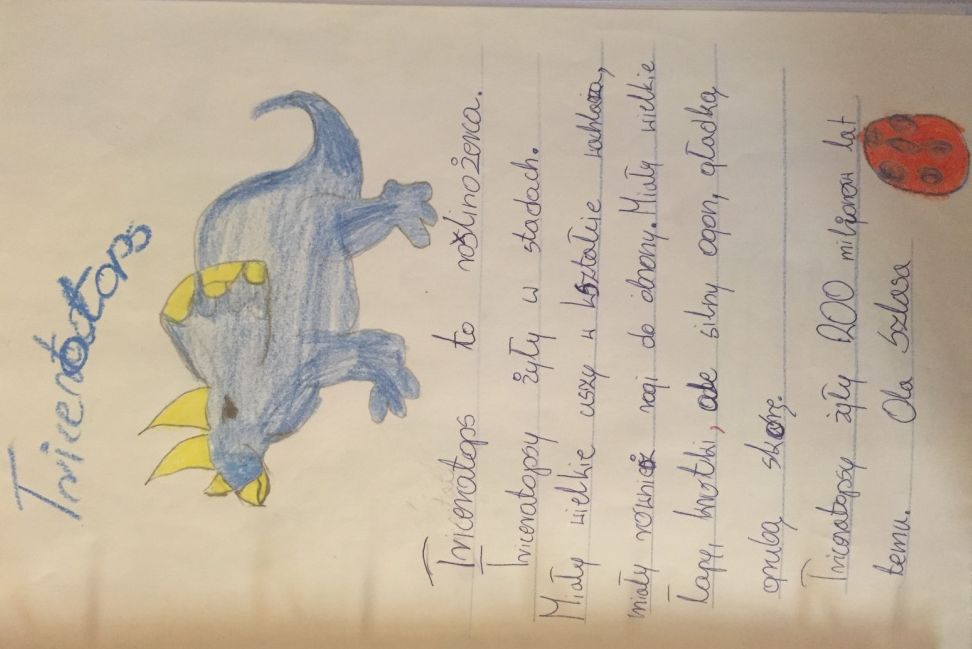 Triceratops
Triceratops to roślinożerca.
Triceratopsy żyły w stadach.
Miały wielkie uszy w kształcie wachlarza,
miały również rogi do obrony. Miały wielkie
łapy, krótki, ale silny ogon, gładką,
grubą skórę.
Triceratopsy żyły 200 milionów lat
temu. Ola Szlasa